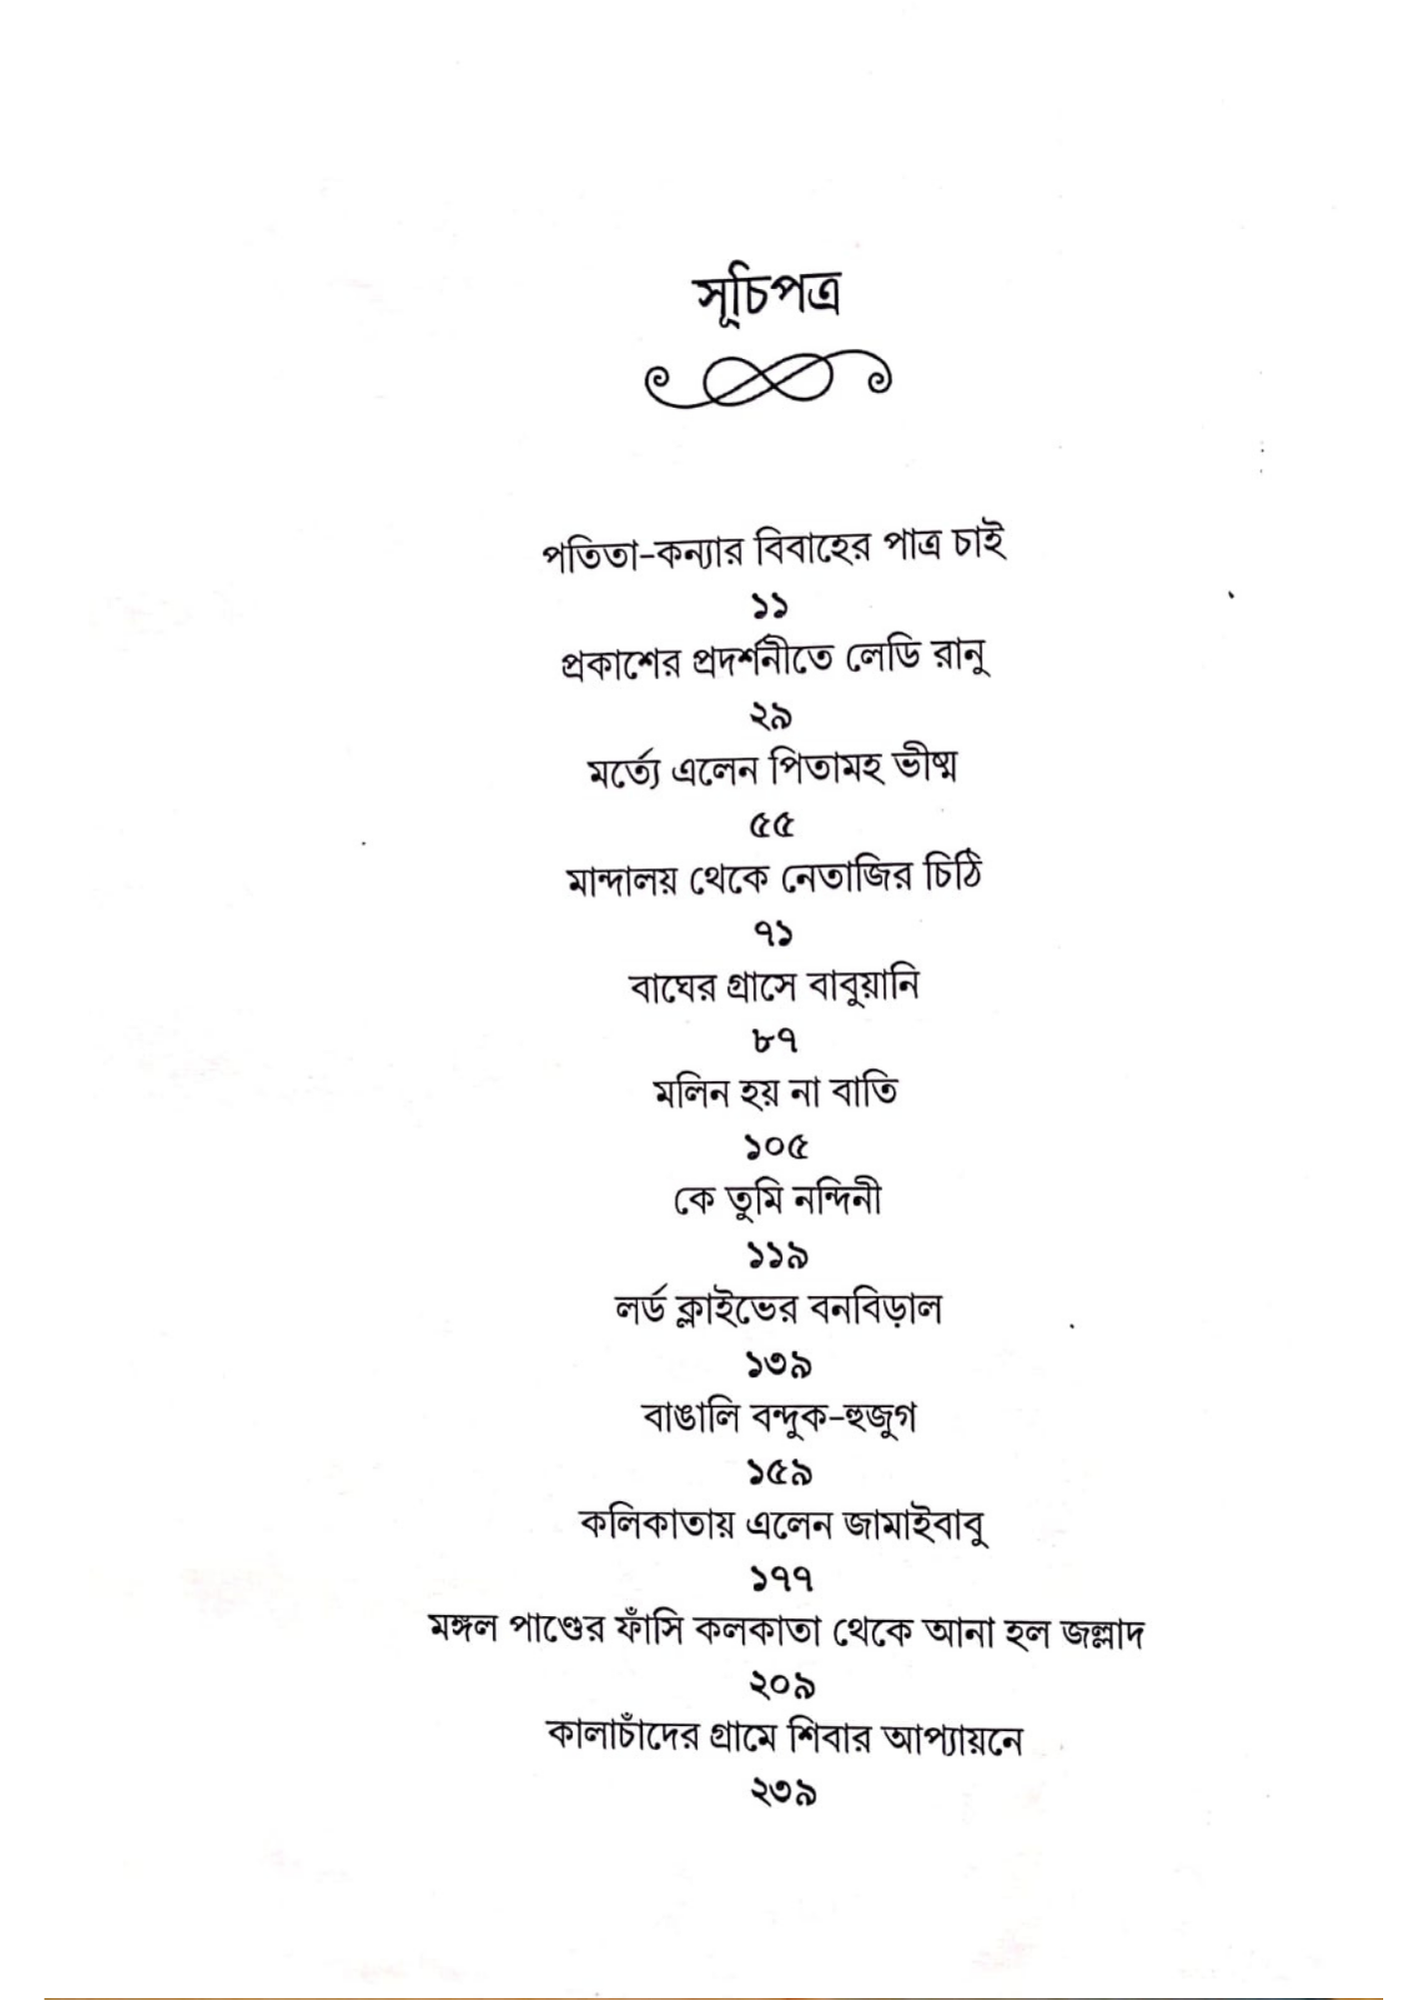 সূচিপত্র
পতিতা-কন্যার বিবাহের পাত্র চাই
১১
প্রকাশের প্রদর্শনীতে লেডি রানু
২৯
মর্ত্যে এলেন পিতামহ ভীষ্ম
৫৫
মান্দালয় থেকে নেতাজির চিঠি
৭১
বাঘের গ্রাসে বাবুয়ানি
৮৭
মলিন হয় না বাতি
১০৫
কে তুমি নন্দিনী
১১৯
লর্ড ক্লাইভের বনবিড়াল
১৩৯
বাঙালি বন্দুক-হুজুগ
১৫৯
কলিকাতায় এলেন জামাইবাবু
১৭৭
মঙ্গল পাণ্ডের ফাঁসি কলকাতা থেকে আনা হল জল্লাদ
২০৯
কালাচাঁদের গ্রামে শিবার আপ্যায়নে
২৩৯